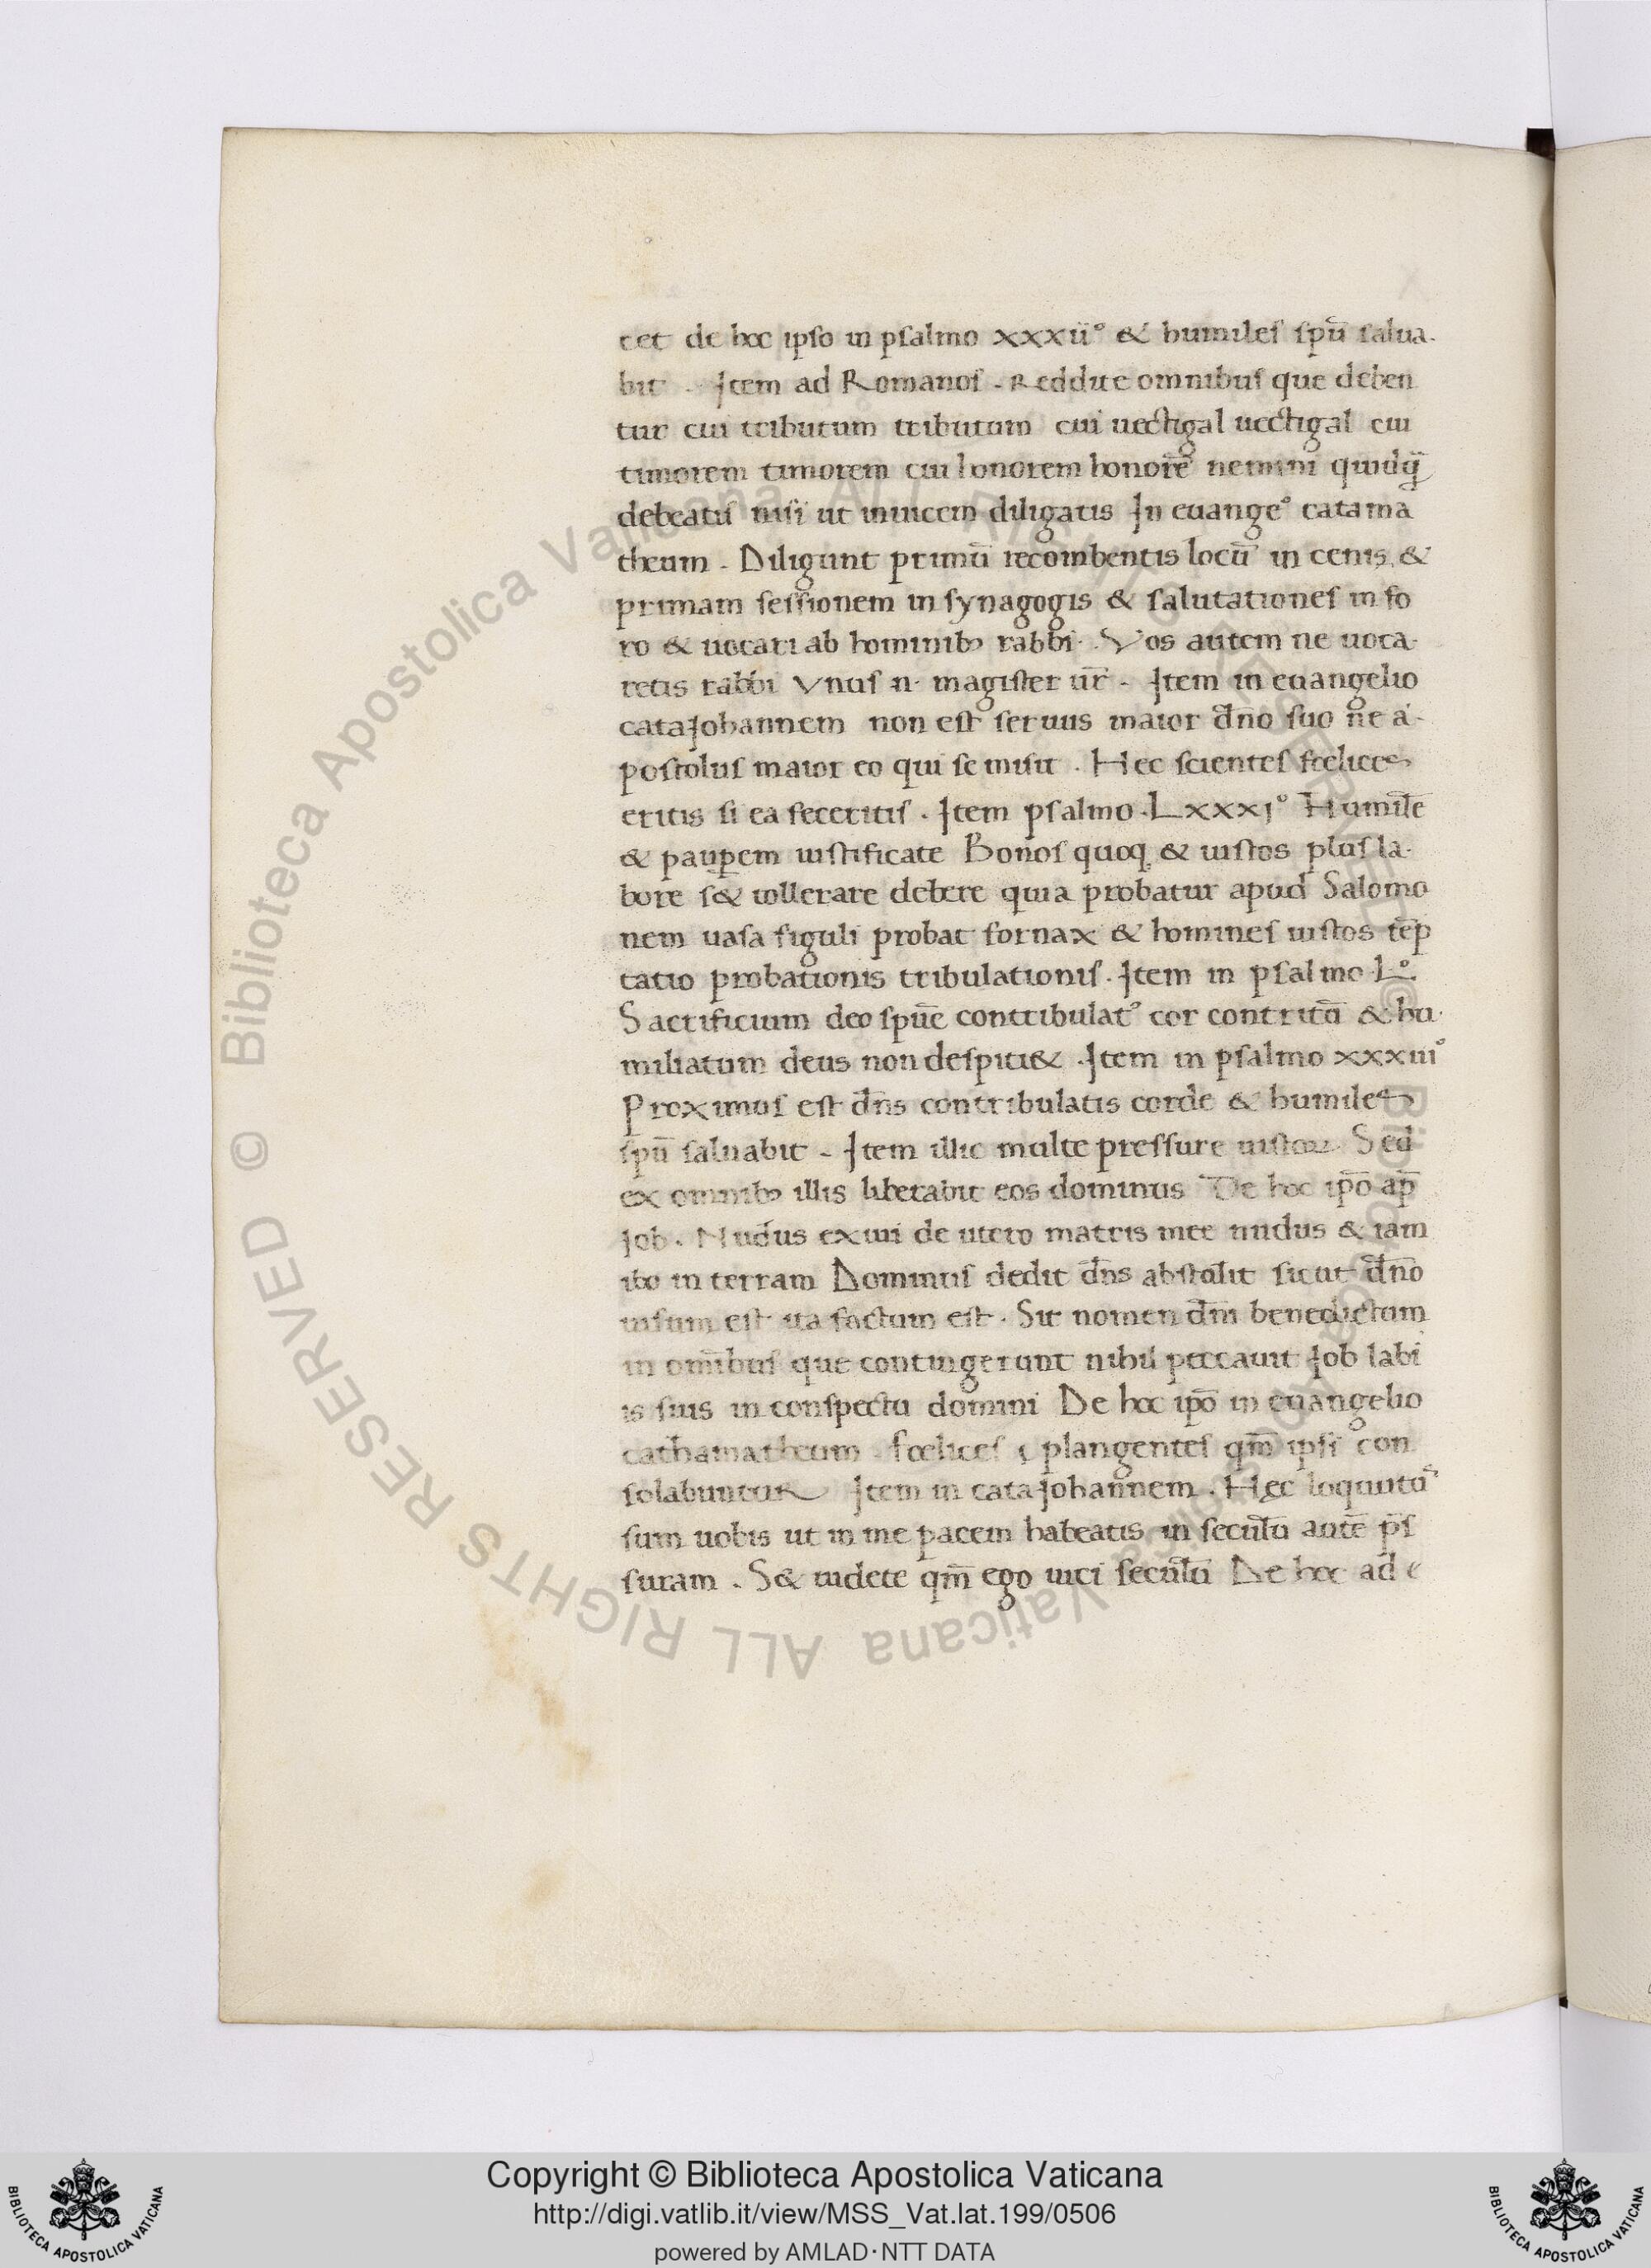 cet de hoc ipso in psalmo xxxii° & humiles spū salua-
bit. Item ad Romanos. Reddite omnibus que deben
tur cui tributum tributum cui uectigal uectigal cui
timorem timorem cui honorem honorē nemini quidq̄
debeatis nisi ut inuicem diligatis In euange° catama
theum. Diligunt primū recombentis locū in cenis &
primam sessionem in synagogis & salutationes in fo
ro & uocari ab hominib; rabbi. Vos autem ne uoca-
retis rabbi Vnus n. magister ur̄. Item in euangelio
cataJohannem non est seruus maior dn̄o suo ne a-
postolus maior eo qui se misit. Hec scientes fœlices
eritis si ea feceritis. Item psalmo. Lxxxj° Humilē
& paup̱em iustificate Bonos quoq; & iustos plus la-
bore s& tollerare debere quia probatur apud Salomo
nem uasa figuli probat fornax & homines iustos tēp
tatio probationis tribulationis. Item in psalmo L°.
Sacrificium deo spūc contribulat° cor contritū & hu-
miliatum deus non despici&. Item in psalmo xxxiii°
Proximus est dn̄s contribulatis corde & humiles
spū saluabit. Item illic multe pressure iustoꝝ. Sed
ex omnib; illis liberabit eos dominus De hoc ip̄o ap̄
Job. Nudus exiui de utero matris mee nudus & iam
ibo in terram Dominus dedit dn̄s abstolit sicut dn̄o
uisum est ita factum est. Sit nomen dn̄i benedictum
in om̄ibus que contingerunt nihil peccauit Job labi
is suis in conspectu domini De hoc ip̄o in euangelio
cathamatheum. fœlices plangentes qm̄ ipsi con
solabuntur Item in cataJohannem. Hec loquutū
sum uobis ut in me pacem habeatis in seculū autē p̄s
suram. S& uidete qm̄ ego uici seculū De hoc ad
© Biblioteca Apostolica Vaticana ALL RIGHTS RESERVED
© Biblioteca Apostolica Vaticana ALL RIGHTS RESERVED
Copyright © Biblioteca Apostolica Vaticana
http://digi.vatlib.it/view/MSS_Vat.lat.199/0506
powered by AMLAD·NTT DATA
BIBLIOTECA APOSTOLICA VATICANA
BIBLIOTECA APOSTOLICA VATICANA